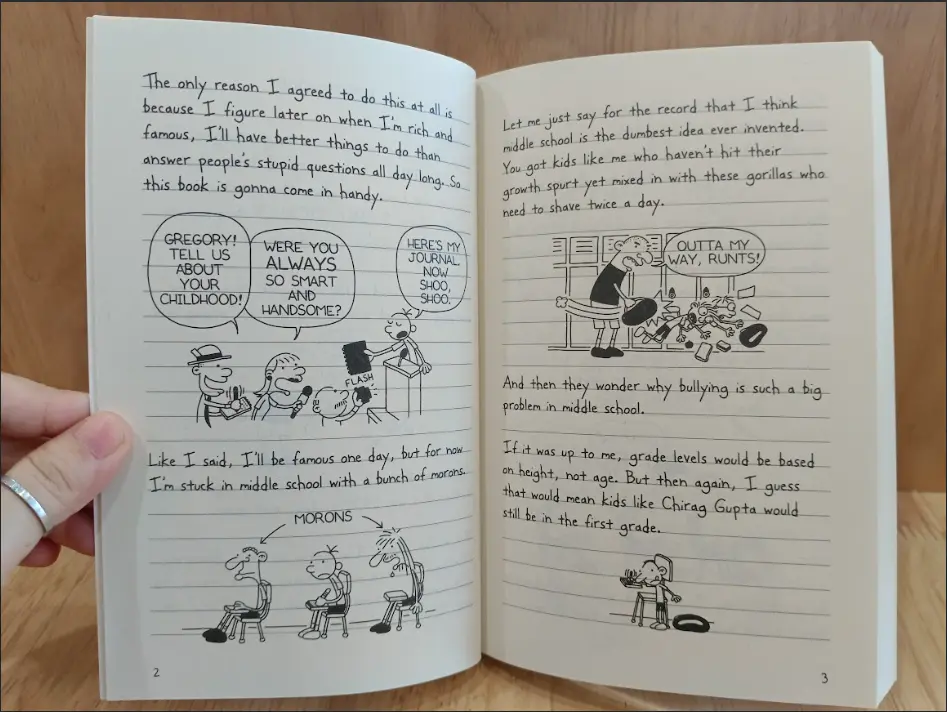 The only reason I agreed to do this at all is
because I figure later on when I'm rich and
famous, I'll have better things to do than
answer people's stupid questions all day long. So
this book is gonna come in handy.
GREGORY!
TELL US
ABOUT
YOUR
CHILDHOOD!
WERE YOU
ALWAYS
SO SMART
AND
HANDSOME?
HERE'S MY
JOURNAL.
NOW
SHOO,
SHOO.
FLASH
Like I said, I'll be famous one day, but for now
I'm stuck in middle school with a bunch of morons.
MORONS
2
Let me just say for the record that I think
middle school is the dumbest idea ever invented.
You got kids like me who haven't hit their
growth spurt yet mixed in with these gorillas who
need to shave twice a day.
OUTTA MY
WAY, RUNTS!
And then they wonder why bullying is such a big
problem in middle school.
If it was up to me, grade levels would be based
on height, not age. But then again, I guess
that would mean kids like Chirag Gupta would
still be in the first grade.
3